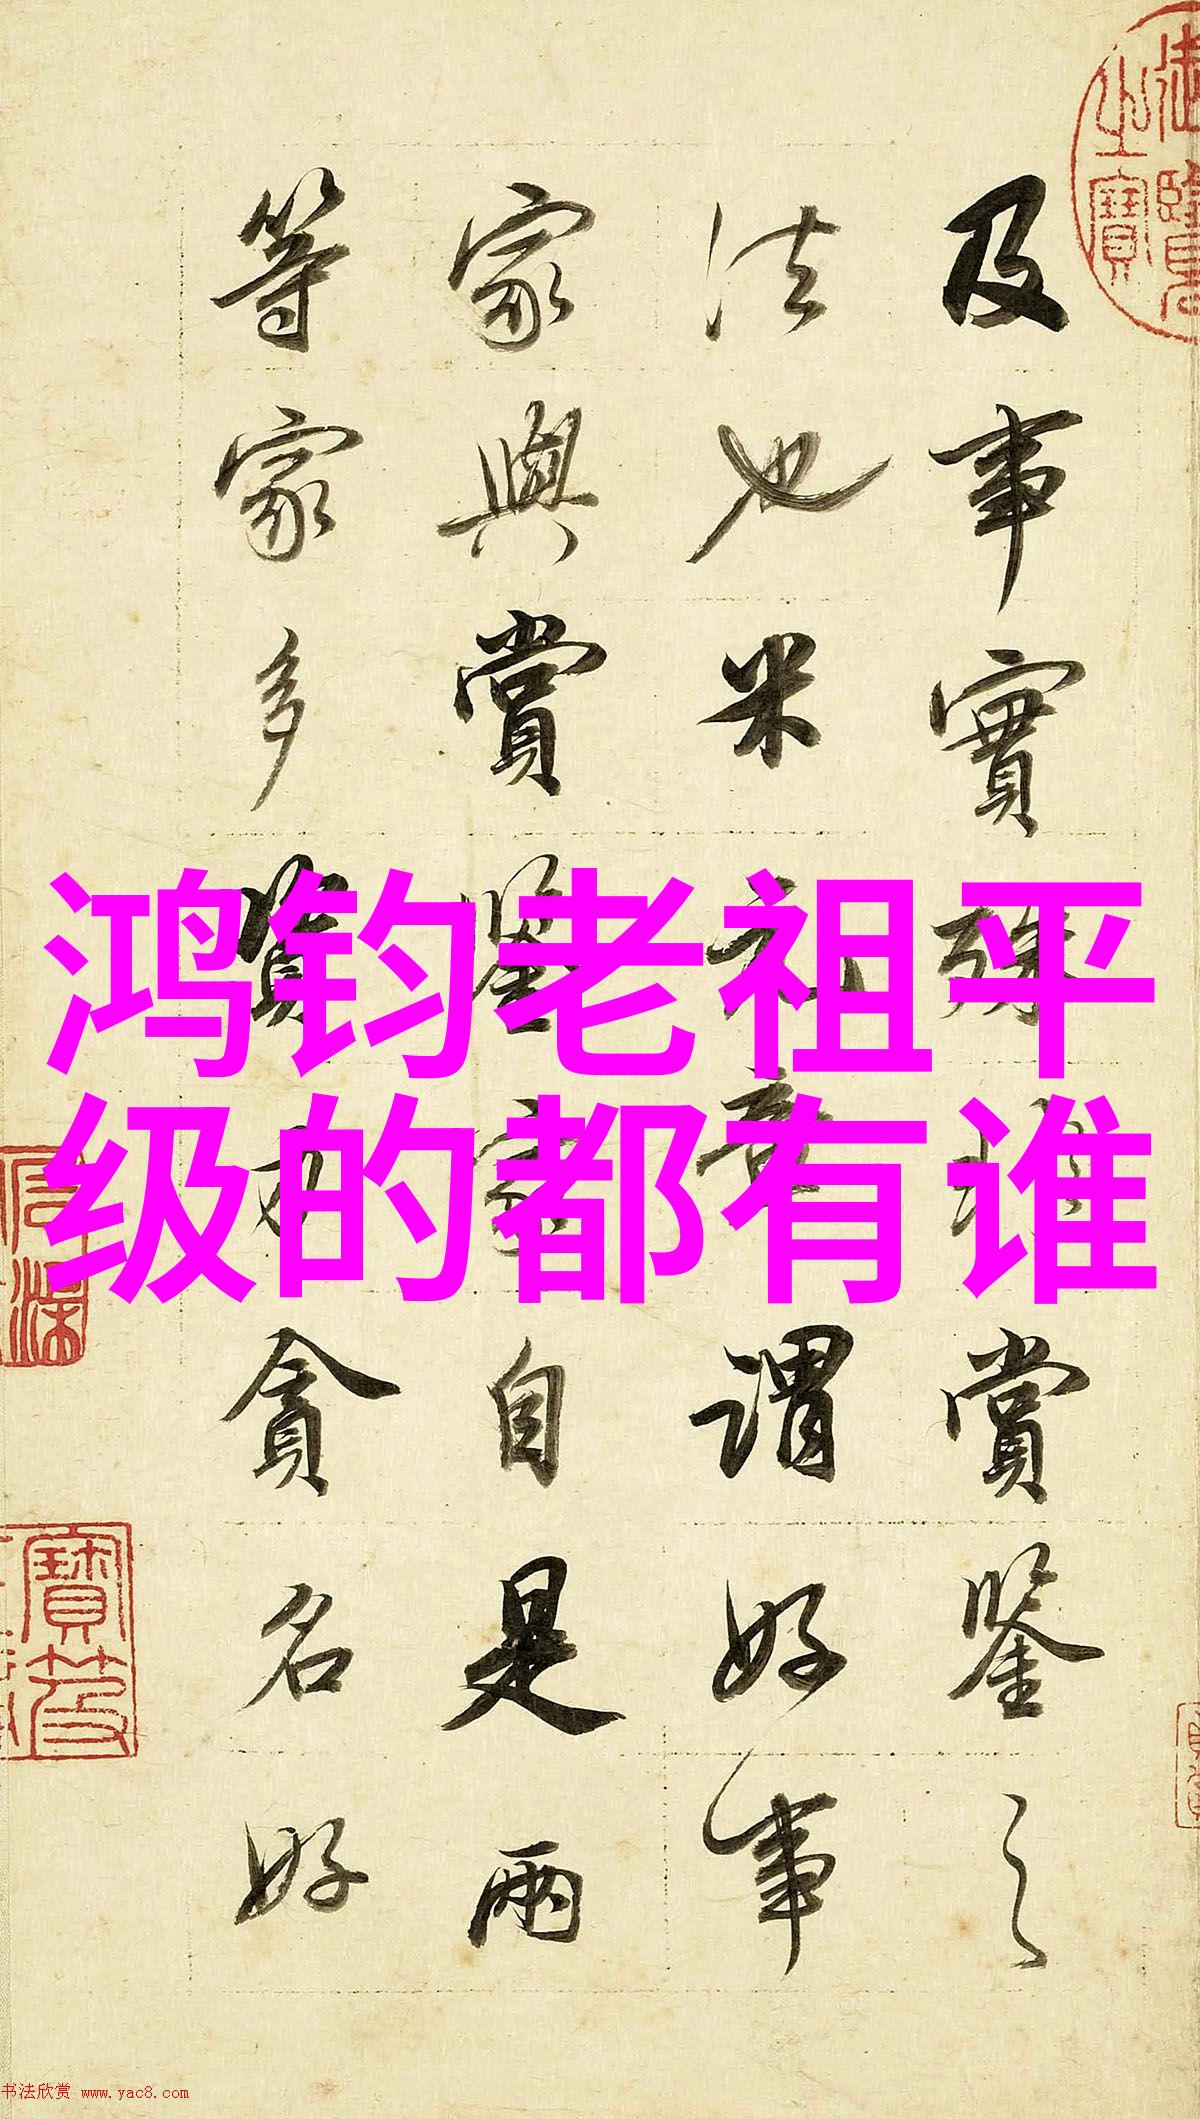 鸿钧老祖平
级的都有谁
及事實殊
賞鑒之
法也米
謂好事
家與賞鑒
家自是兩
等家多資
力貪名好
御覽之寶
书法欣赏 www.yac8.com